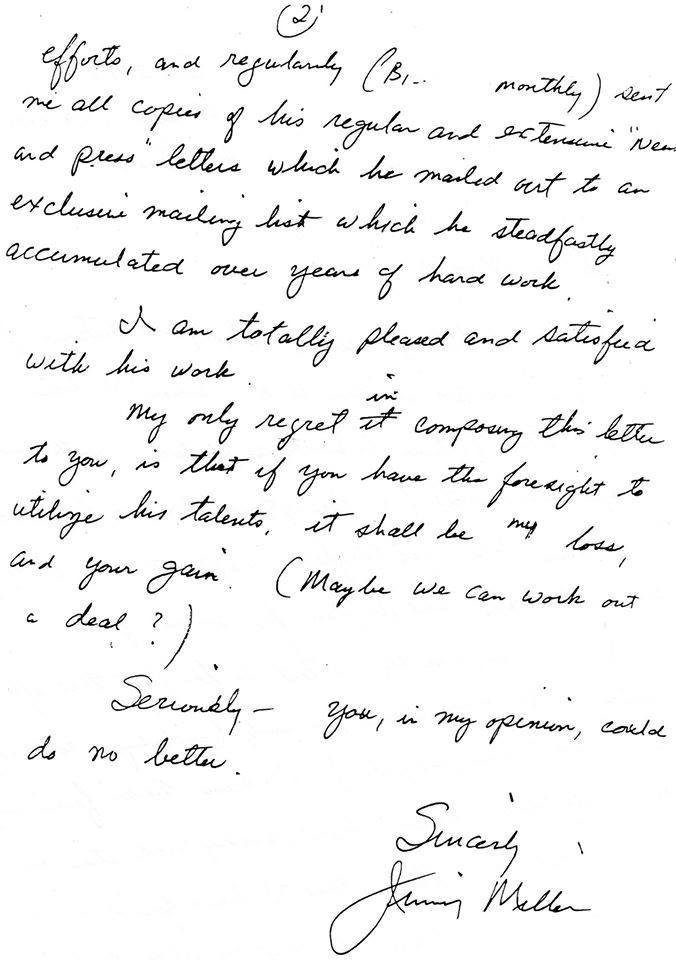 (2)
efforts, and regularly (Bi- monthly) sent
me all copies of his regular and extensive "News
and press" letters which he mailed out to an
exclusive mailing list which he steadfastly
accumulated over years of hard work.
I am totally pleased and satisfied
with his work.
in
My only regret it composing this letter
to you, is that if you have the foresight to
utilize his talents, it shall be my loss,
and your gain. (Maybe we can work out
a deal?)
Seriously – you, in my opinion, could
do no better.
Sincerly